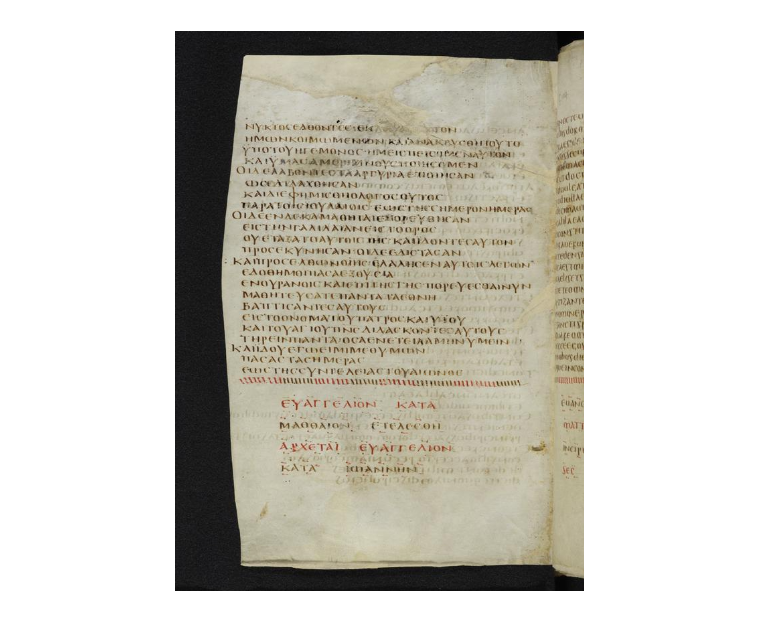 ΝΥΚΤΟΣ ΕΛΘΟΝΤΕΣ ΤΟΝ
ΗΜΩΝ ΚΟΙΜΩΜΕΝΩΝ ΚΑΙ ΕΑΝ ΑΚΟΥΣΘΗ ΤΟΥΤΟ
ΥΠΟ ΤΟΥ ΗΓΕΜΟΝΟΣ ΗΜΕΙΣ ΠΕΙΣΟΜΕΝ ΑΥΤΟΝ
ΚΑΙ ΥΜΑΣ ΑΜΕΡΙΜΝΟΥΣ ΠΟΙΗΣΟΜΕΝ
ΟΙ ΔΕ ΛΑΒΟΝΤΕΣ ΤΑ ΑΡΓΥΡΙΑ ΕΠΟΙΗΣΑΝ
ΩΣ ΕΔΙΔΑΧΘΗΣΑΝ
ΚΑΙ ΔΙΕΦΗΜΙΣΘΗ Ο ΛΟΓΟΣ ΟΥΤΟΣ
ΠΑΡΑ ΤΟΙΣ ΙΟΥΔΑΙΟΙΣ ΕΩΣ ΤΗΣ ΣΗΜΕΡΟΝ ΗΜΕΡΑΣ
ΟΙ ΔΕ ΕΝΔΕΚΑ ΜΑΘΗΤΑΙ ΕΠΟΡΕΥΘΗΣΑΝ
ΕΙΣ ΤΗΝ ΓΑΛΙΛΑΙΑΝ ΕΙΣ ΤΟ ΟΡΟΣ
ΟΥ ΕΤΑΞΑΤΟ ΑΥΤΟΙΣ ΙΗΣ ΚΑΙ ΙΔΟΝΤΕΣ ΑΥΤΟΝ
ΠΡΟΣΕΚΥΝΗΣΑΝ ΟΙ ΔΕ ΕΔΙΣΤΑΣΑΝ
ΚΑΙ ΠΡΟΣΕΛΘΩΝ Ο ΙΗΣ ΕΛΑΛΗΣΕΝ ΑΥΤΟΙΣ ΛΕΓΩΝ
ΕΔΟΘΗ ΜΟΙ ΠΑΣΑ ΕΞΟΥΣΙΑ
ΕΝ ΟΥΡΑΝΟΙΣ ΚΑΙ ΕΠΙ ΤΗΣ ΓΗΣ ΠΟΡΕΥΕΣΘΑΙ ΝΥΝ
ΜΑΘΗΤΕΥΣΑΤΕ ΠΑΝΤΑ ΤΑ ΕΘΝΗ
ΒΑΠΤΙΣΑΝΤΕΣ ΑΥΤΟΥΣ
ΕΙΣ ΤΟ ΟΝΟΜΑ ΤΟΥ ΠΑΤΡΟΣ ΚΑΙ ΥΙΟΥ
ΚΑΙ ΤΟΥ ΑΓΙΟΥ ΠΝΣ ΔΙΔΑΣΚΟΝΤΕΣ ΑΥΤΟΥΣ
ΤΗΡΕΙΝ ΠΑΝΤΑ ΟΣΑ ΕΝΕΤΕΙΛΑΜΗΝ ΥΜΕΙΝ
ΚΑΙ ΙΔΟΥ ΕΓΩ ΕΙΜΙ ΜΕΘ ΥΜΩΝ
ΠΑΣΑΣ ΤΑΣ ΗΜΕΡΑΣ
ΕΩΣ ΤΗΣ ΣΥΝΤΕΛΕΙΑΣ ΤΟΥ ΑΙΩΝΟΣ
ΕΥΑΓΓΕΛΙΟΝ ΚΑΤΑ
ΜΑΘΘΑΙΟΝ ΕΤΕΛΕΣΘΗ
ΑΡΧΕΤΑΙ ΕΥΑΓΓΕΛΙΟΝ
ΚΑΤΑ ΙΩΑΝΝΗΝ